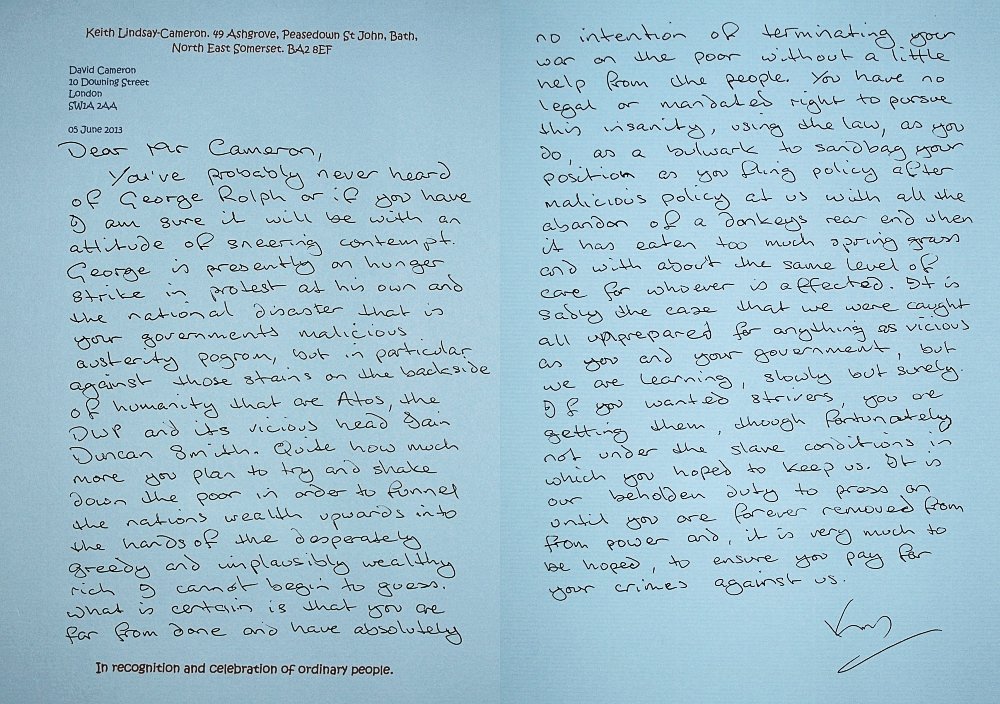 Keith Lindsay-Cameron. 49 Ashgrove, Peasedown St John, Bath,
North East Somerset. BA2 8EF
David Cameron
10 Downing Street
London
SW1A 2AA
05 June 2013
Dear Mr Cameron,
You've probably never heard
of George Rolph or if you have
I am sure it will be with an
attitude of sneering contempt.
George is presently on hunger
strike in protest at his own and
the national disaster that is
your governments malicious
austerity pogrom, but in particular
against those stains on the backside
of humanity that are Atos, the
DWP and its vicious head Iain
Duncan Smith. Quite how much
more you plan to try and shake
down the poor in order to funnel
the nations wealth upwards into
the hands of the desperately
greedy and implausibly wealthy
rich I cannot begin to guess.
What is certain is that you are
far from done and have absolutely
In recognition and celebration of ordinary people.
no intention of terminating your
war on the poor without a little
help from the people. You have no
legal or mandated right to pursue
this insanity, using the law, as you
do, as a bulwark to sandbag your
position as you fling policy after
malicious policy at us with all the
abandon of a donkeys rear end when
it has eaten too much spring grass
and with about the same level of
care for whoever is affected. It is
sadly the case that we were caught
all unprepared for anything as vicious
as you and your government, but
we are learning, slowly but surely.
If you wanted strivers, you are
getting them, though fortunately
not under the slave conditions in
which you hoped to keep us. It is
our beholden duty to press on
until you are forever removed from
from power and, it is very much to
be hoped, to ensure you pay for
your crimes against us.